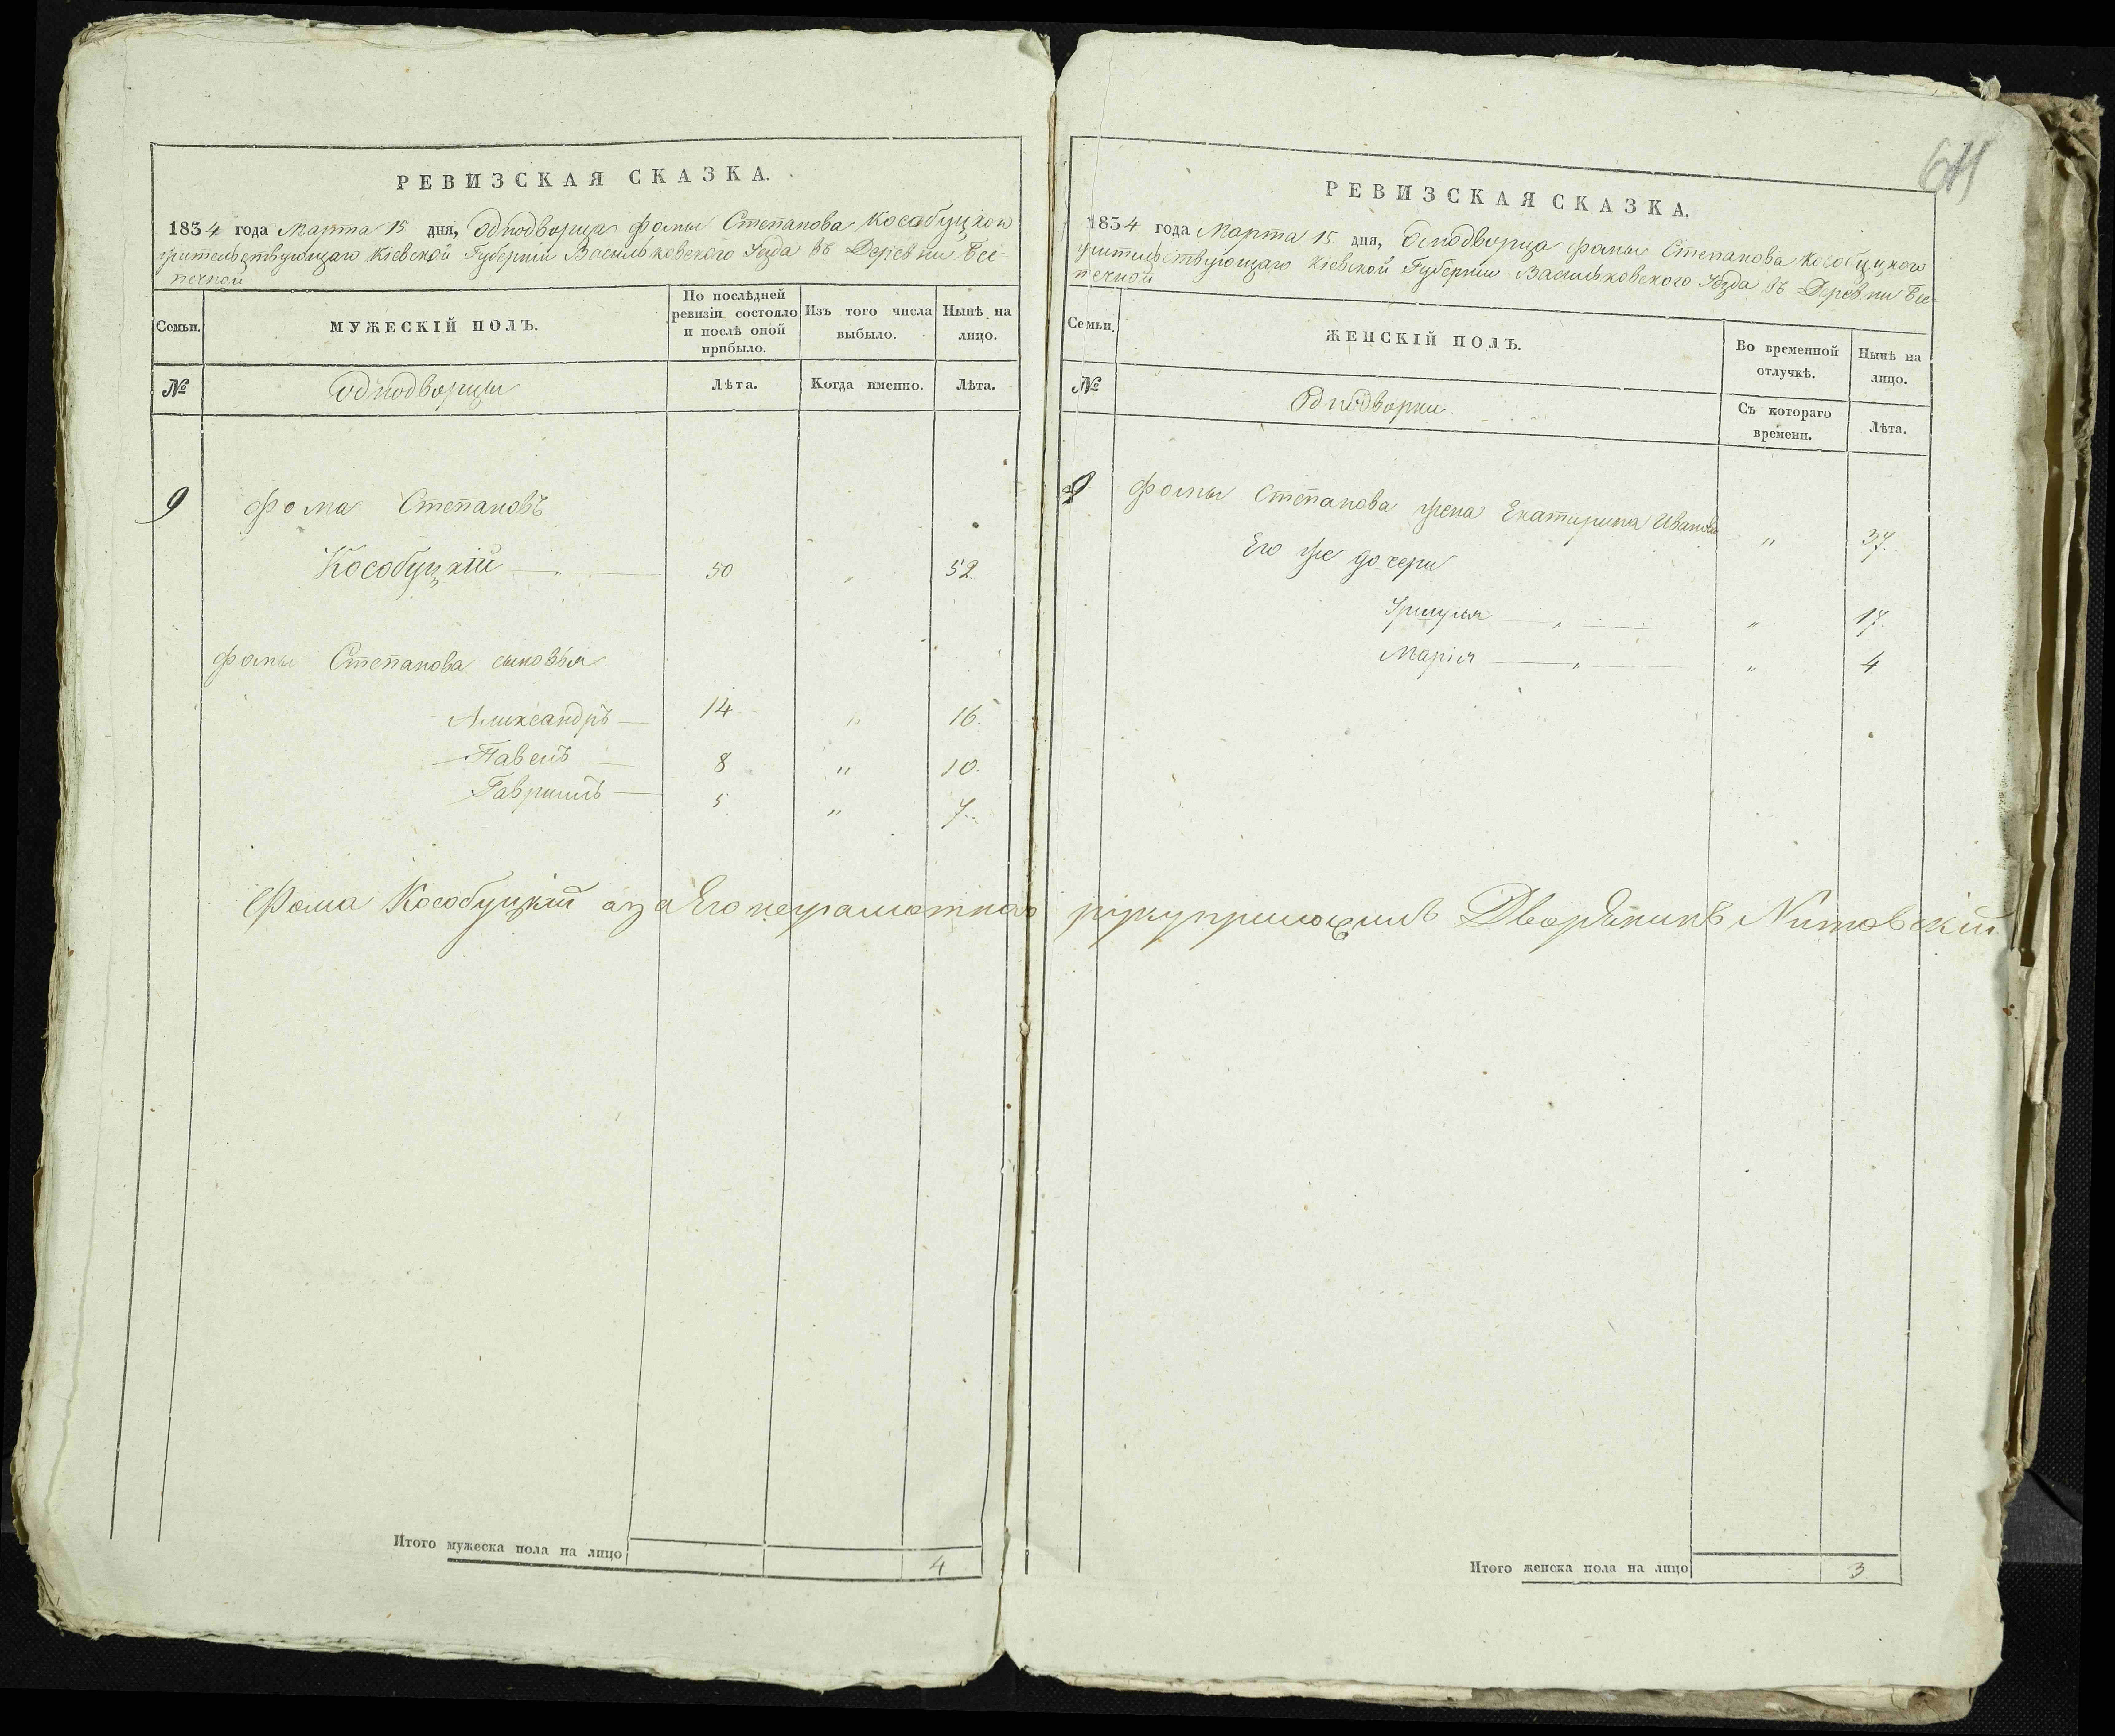 РЕВИЗСКАЯ СКАЗКА.
1834 года Марта 15 дня, Однодворца Фомы Степанова Косабуцкого
жительствующаго Кіевской Губерніи Васильковского Уезда въ Деревни Бес-
печной
Семьи.
МУЖЕСКІЙ ПОЛЪ.
По послѣдней ревизіи состояло и послѣ оной прибыло.
Изъ того числа выбыло.
Нынѣ на лицо.
№
однодворцы
Лѣта.
Когда именно.
Лѣта.
9 Фома Степановъ
Кособуцкій — „ — 50 „ 52
Фомы Степанова сыновья
Александръ — 14 „ 16.
Павелъ — 8 „ 10.
Гавриилъ — 5 „ 7.
Фома Кособуцкій а за Его неграмотнаго
Итого мужеска пола на лицо 4
641
РЕВИЗСКАЯ СКАЗКА.
1834 года Марта 15 дня, Однодворца Фомы Степанова Кособуцкого
жительствующаго Кіевской Губерніи Васильковского Уезда въ Деревни Бес-
печной
Семьи.
ЖЕНСКІЙ ПОЛЪ.
Во временной отлучкѣ.
Нынѣ на лицо.
№
Однодворки
Съ котораго времени.
Лѣта.
9 Фомы Степанова жена Екатерина Иванова „ 37.
Его же дочери
— „ — „ 17.
Марія — „ — „ 4
руку приложилъ Дворянинъ
Итого женска пола на лицо 3